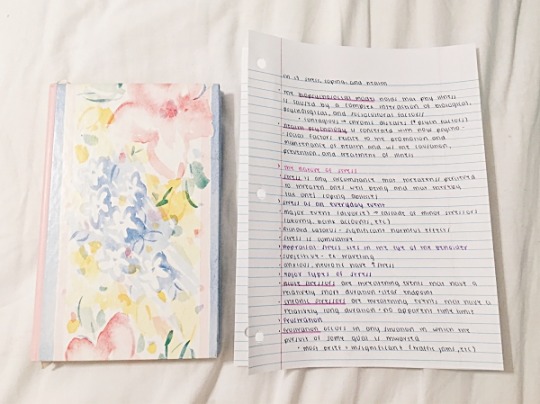 stress, coping, and health
• the biopsychosocial model holds that phy illness
is caused by a complex interaction of biological,
psychological, and sociocultural factors
• contagious → chronic diseases (↑ psych factors)
• health psychology is concerned with how psycho-
social factors relate to the promotion and
maintenance of health and w/ the causation,
prevention, and treatment of illness
the nature of stress
• stress is any circumstance that threatens perceived
to threaten one's well being and that
coping abilities
• stress as an everyday event
major events (divorce) → cascade of minor stressors
bank accounts, etc)
• minor stress
• stress is cumulative
• appraisal: stress lies in the eye of the beholder
subjective
anxious, neurotic have ↑ stress
• major types of stress
• acute stressors are threatening events that have a
relatively short duration + clear endpoint
• chronic stressors are threatening events that have a
relatively long duration + no apparent time limit
• frustration
• frustration occurs in any situation in which the
pursuit of some goal is thwarted
• most brief + insignificant (traffic jams, etc)